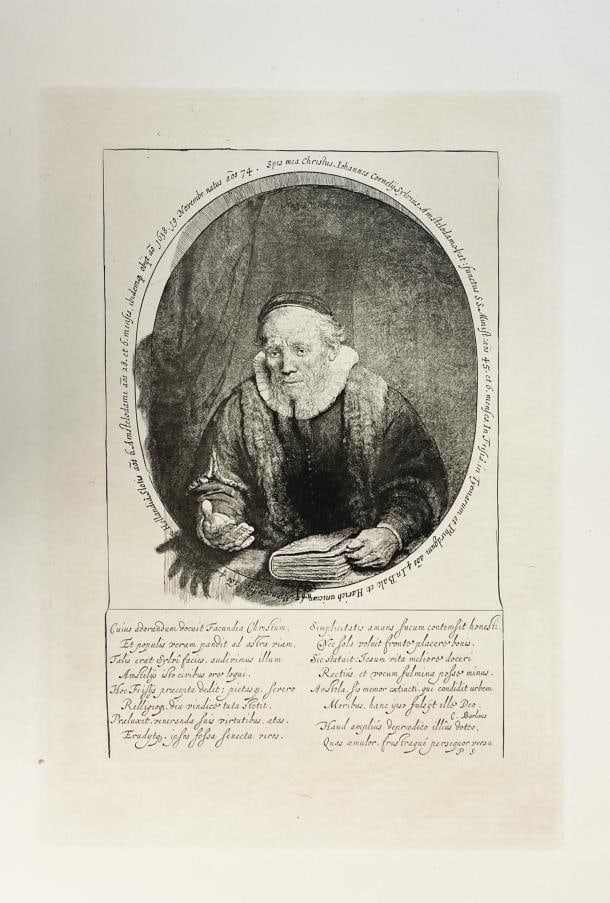 Spes mea Christus. Iohannes Cornelij Sylvius, Amstelodamo bat: functus S.S. Minist: aōs 45. et 6. menses. In Frisia in Tyemarum et Phirdgum aōs 4. In Balc et Harich unicum. In
Hollandia Slotis aōs 6. Amstelodami aōs 28. et 6. menses, ibidemq obijt aō 1638. 19. Novembr. natus aōs 74.
Cuius adorandum docuit Facundia Christum,
Et populis veram pandit ad astra viam,
Talis erat Sylvî facies. audivimus illum
Amstelijs isto civibus ore loqui.
Hoc Frisijs præcepta dedit; pietasq. severo
Relligioq. diu vindice tuta stetit.
Præluxit, veneranda suis virtutibus, ætas.
Erudytq. ipsos fessa senecta viros.
Simplicitatis amans fucum contemsit honesti,
Nec sola voluit fronte placere bonis.
Sic statuit: Iesum vita meliore doceri
Rectius, et vocum fulmina posse minus.
Amstela, sis memor extincti, qui condidit urbem
Moribus, hanc ipso fulsijt ille Deo.
C. Barleus
Haud amplius deprædico illius dotes,
Quas æmulor, frustraque persequor versu.
P. S.